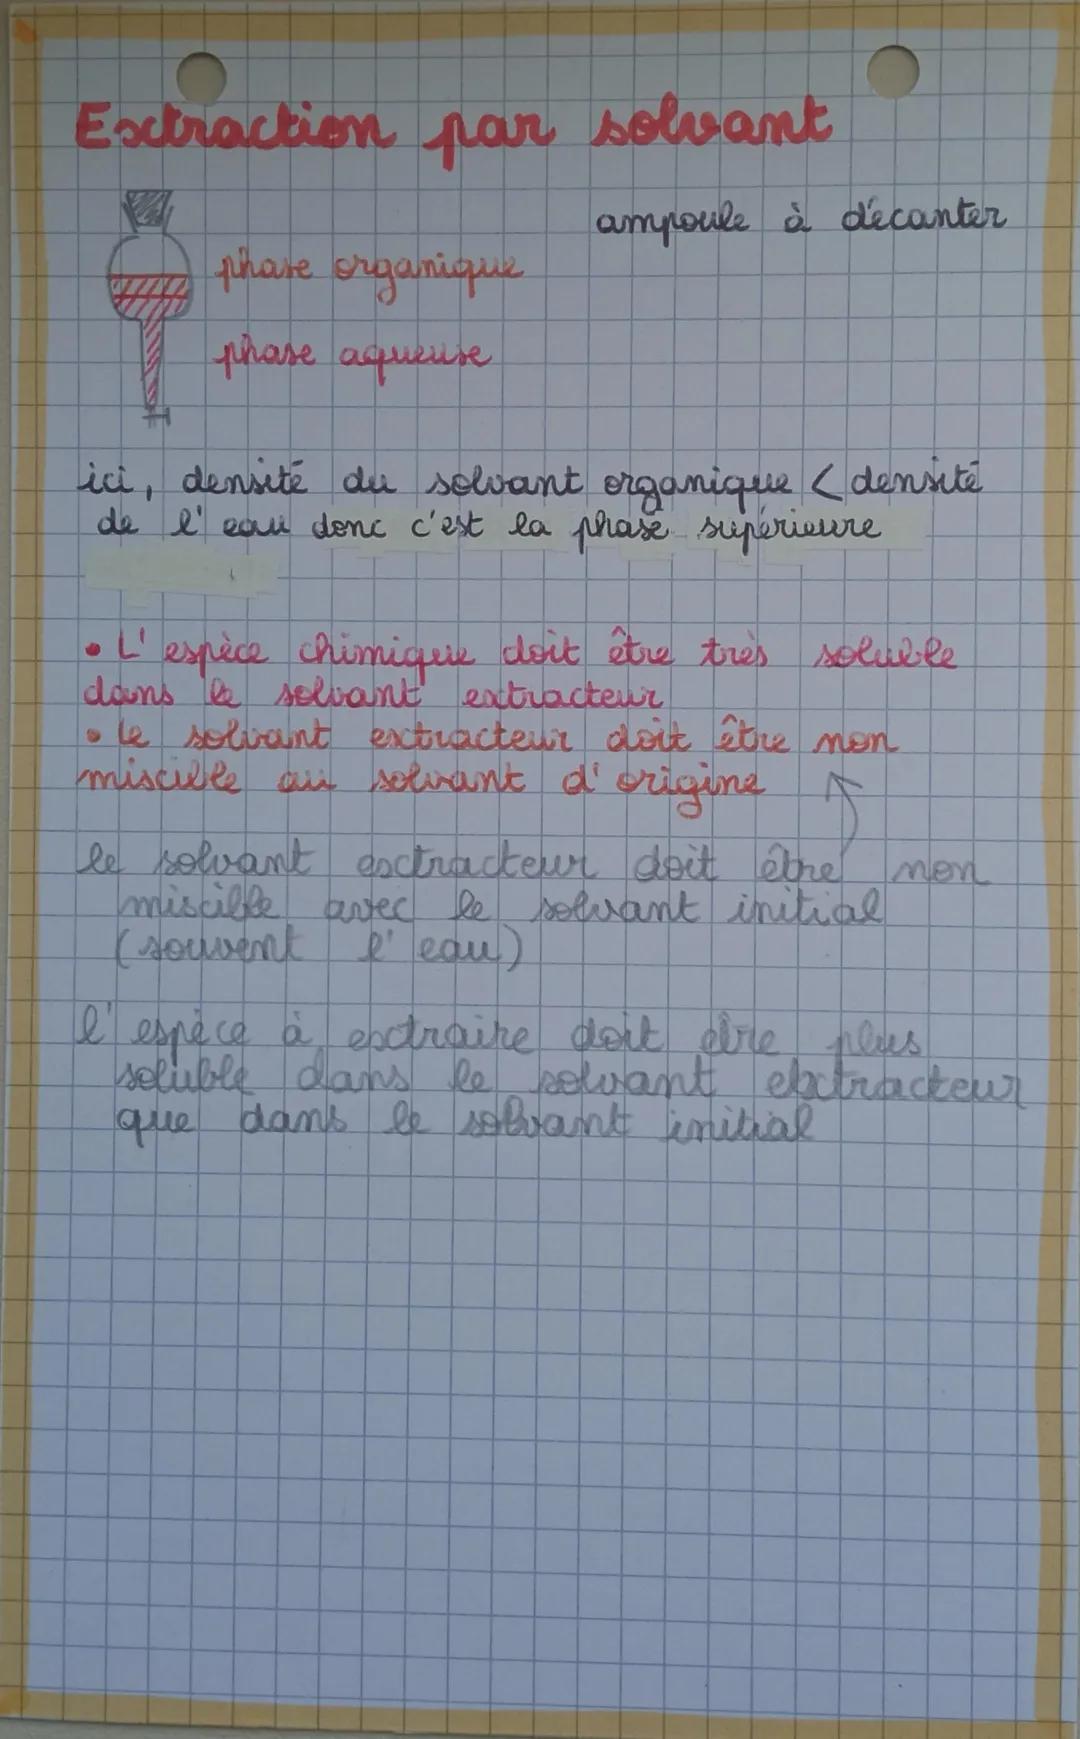 Extraction par solvant
ampoule à décanter
phase organique
phase aqueuse
ici, densité du solvant organique < densité
de l'eau donc c'est la phase supérieure
• L'espèce chimique doit être très soluble
dans le solvant extracteur
• le solvant extracteur doit être non
miscible au solvant d'origine
le solvant extracteur doit être non
miscible avec le solvant initial
(souvent l'eau)
l'espèce à extraire doit être plus
soluble dans le solvant extracteur
que dans le solvant initial